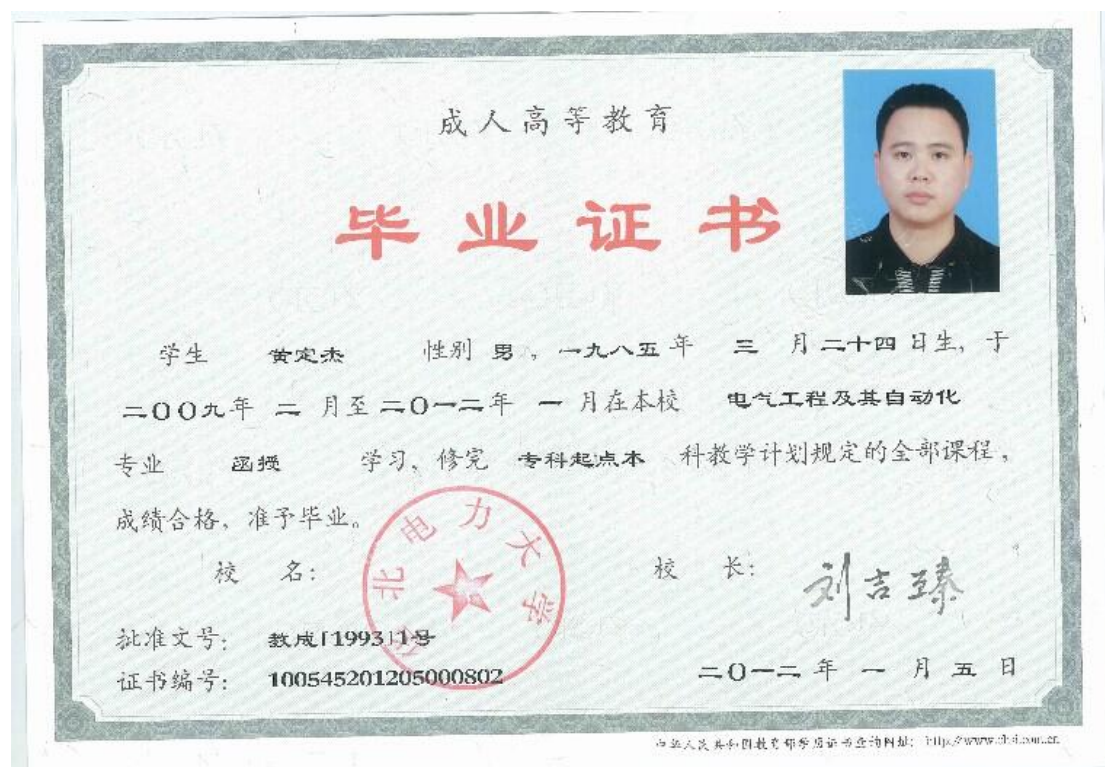 成人高等教育
毕业证书
学生 黄定杰 性别 男，一九八五年 三 月二十四日生，于
二〇〇九年 二 月至二〇一二年 一 月在本校 电气工程及其自动化
专业 函授 学习，修完 专科起点本 科教学计划规定的全部课程，
成绩合格，准予毕业。
校 名： 华北电力大学
校 长： 刘吉臻
批准文号： 教成[1993]1号
证书编号： 100545201205000802
二〇一二年 一 月 五 日
中华人民共和国教育部学历证书查询网址： http://www.chsi.com.cn